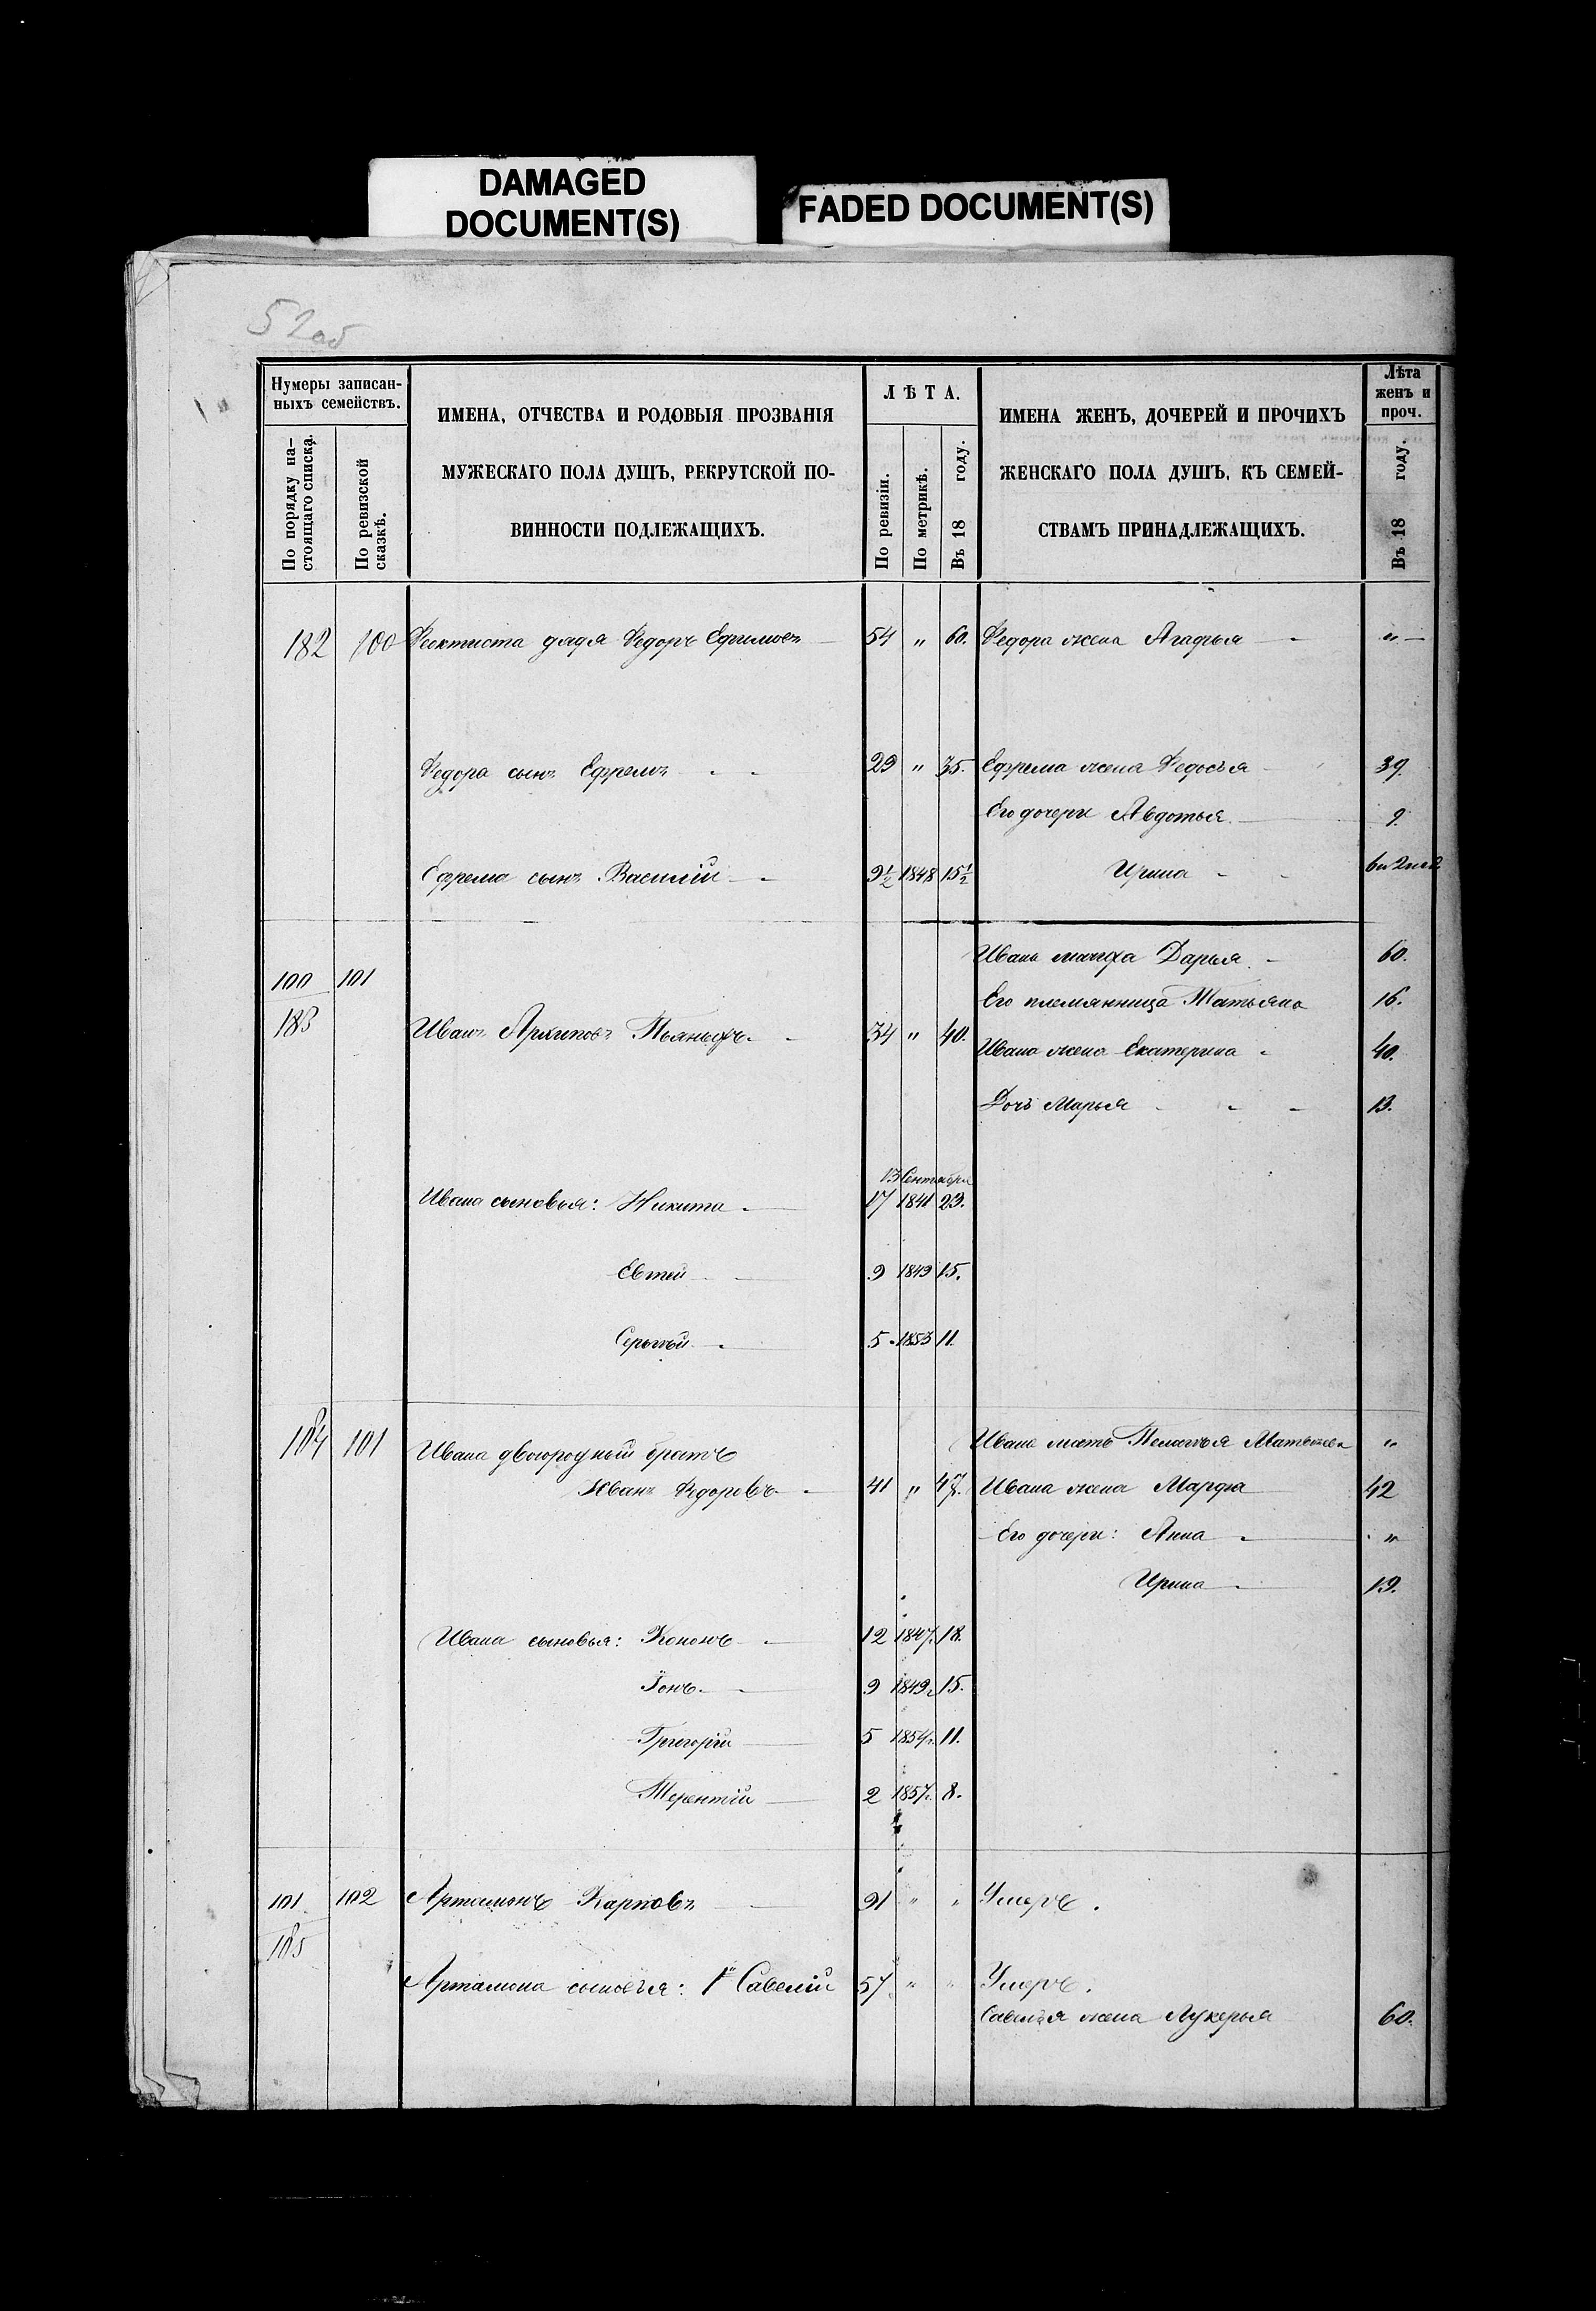 DAMAGED
DOCUMENT(S)
FADED DOCUMENT(S)
52об
Нумеры записан-
ныхъ семействъ.
По порядку на-
стоящаго списка.
По ревизской
сказкѣ.
ИМЕНА, ОТЧЕСТВА И РОДОВЫЯ ПРОЗВАНІЯ
МУЖЕСКАГО ПОЛА ДУШЪ, РЕКРУТСКОЙ ПО-
ВИННОСТИ ПОДЛЕЖАЩИХЪ.
ЛѢТА.
По ревизіи.
По метрикѣ.
Въ 18 году.
ИМЕНА ЖЕНЪ, ДОЧЕРЕЙ И ПРОЧИХЪ
ЖЕНСКАГО ПОЛА ДУШЪ, КЪ СЕМЕЙ-
СТВАМЪ ПРИНАДЛЕЖАЩИХЪ.
Лѣта
женъ и
проч.
Въ 18 году.
182 100 Феоктиста дядя Федоръ Ефимовъ 54 " 60. Федора жена Агафья " —
Федора сынъ Ефремъ 29 " 35. Ефрема жена Федосья 39.
Его дочери Авдотья 9.
Ефрема сынъ Василій 9½ 1848 15½ Ирина
Ивана мачиха Дарья 60.
100 101
Его племянница Татьяна 16.
183 Иванъ Архиповъ Пьяныхъ 34 " 40.
Ивана жена Екатерина 40.
Дочь Марья 13.
13 Сентября
Ивана сыновья: Никита 17 1841 23.
Евтей 9 1849 15.
Сергѣй 5 1853 11.
184 101 Ивана двоюродный братъ
Ивана мать Пелагѣя "
Иванъ Федоровъ 41 " 47. Ивана жена Марфа 42
Его дочери: Анна "
Ирина 19.
Ивана сыновья: Кононъ 12 1847. 18.
Іонъ 9 1849. 15.
Григорій 5 1854. 11.
Терентій 2 1857. 8.
101 102 Артамонъ Карповъ 91 " " Умеръ.
185
Артамона сыновья: 1й Савелій 57 " " Умеръ.
Савелія жена Лукерья 60.